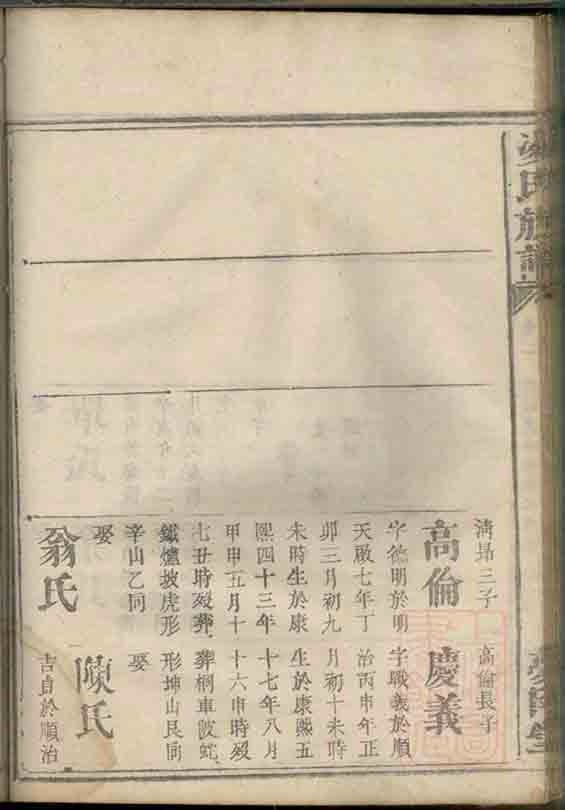 梁氏族譜
清昂三子
高倫
字德明於明
天啟七年丁
卯三月初九
未時生於康
熙四十三年
甲申五月十
七丑時歿葬
鐵爐坡虎形
辛山乙同
娶
翁氏
高倫長子
慶義
字職義於順
治丙申年正
月初十未時
生於康熙五
十七年八月
十六申時歿
葬桐車陂蛇
形坤山艮同
娶
陳氏
吉貞於順治